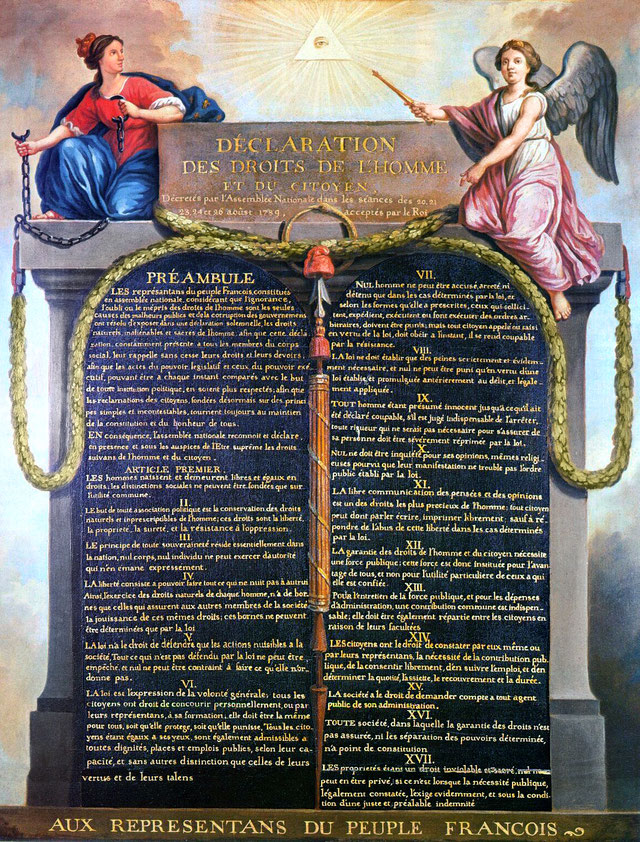 DÉCLARATION
DES DROITS DE L'HOMME
ET DU CITOYEN,
Décretés par l'Assemblée Nationale dans les séances des 20, 21
23, 24 et 26 aoust 1789, acceptés par le Roi
PRÉAMBULE
LES représentans du peuple François, constitués
en assemblée nationale, considérant que l'ignorance,
l'oubli ou le mépris des droits de l'homme sont les seules
causes des malheurs publics et de la corruption des gouvernemens
ont résolu d'exposer dans une déclaration solemnelle, les droits
naturels, inaliénables et sacrés de l'homme; afin que cette décla
ration, constamment présente a tous les membres du corps
social, leur rappelle sans cesse leurs droits et leurs devoirs,
afin que les actes du pouvoir législatif et ceux du pouvoir exé
cutif, pouvant être a chaque instant comparés avec le but
de toute institution politique, en soient plus respectés; afin que
les reclamations des citoyens, fondées désormais sur des princi
pes simples et incontestables, tournent toujours au maintien
de la constitution et du bonheur de tous.
EN conséquence, l'assemblée nationale reconnoit et déclare,
en presence et sous les auspices de l'Etre suprême les droits
suivans de l'homme et du citoyen.
ARTICLE PREMIER.
LES hommes naissent et demeurent libres et égaux en
droits; les distinctions sociales ne peuvent être fondées que sur
l'utilité commune.
II.
LE but de toute association politique est la conservation des droits
naturels et imprescriptibles de l'homme; ces droits sont la liberté,
la propriété, la sureté, et la résistance à l'oppression.
III.
LE principe de toute souveraineté réside essentiellement dans
la nation, nul corps, nul individu ne peut exercer d'autorité
qui n'en émane expressement.
IV.
LA liberté consiste a pouvoir faire tout ce qui ne nuit pas à autrui
Ainsi, l'exercice des droits naturels de chaque homme, n'a de bor-
nes que celles qui assurent aux autres membres de la société
la jouissance de ces mêmes droits; ces bornes ne peuvent
être déterminées que par la loi
V.
LA loi n'a le droit de défendre que les actions nuisibles a la
société, Tout ce qui n'est pas défendu par la loi ne peut être,
empêché, et nul ne peut être contraint à faire ce qu'elle n'or-
donne pas.
VI.
LA loi est l'expression de la volonté générale; tous les
citoyens ont droit de concourir personnellement, ou par
leurs représentans, à sa formation; elle doit être la même
pour tous, soit qu'elle protege, soit qu'elle punisse, Tous les cito-
yens étant égaux à ses yeux, sont également admissibles a
toutes dignités, places et emplois publics, selon leur ca-
pacité, et sans autres distinction que celles de leurs
vertus et de leurs talens
VII.
NUL homme ne peut être accusé, arreté, ni
détenu que dans les cas déterminés par la loi, et
selon les formes qu'elle a prescrites, ceux qui sollici-
tent, expédient, exécutent ou font exécuter des ordres ar-
bitraires, doivent être punis; mais tout citoyen appelé ou saisi
en vertu de la loi, doit obéir à l'instant, il se rend coupable
par la résistance.
VIII.
LA loi ne doit établir que des peines strictement et évidem-
ment nécessaire, et nul ne peut être puni qu'en vertu d'une
loi établie et promulguée antérierement au délit, et légale-
ment appliquée.
IX.
TOUT homme étant présumé innocent jusqu'a ce qu'il ait
été déclaré coupable, s'il est jugé indispensable de l'arrêter,
toute rigueur qui ne serait pas nécessaire pour s'assurer de
sa personne doit être sévèrement réprimée par la loi.
X.
NUL ne doit être inquiété pour ses opinions, mêmes religi-
euses pourvu que leur manifestation ne trouble pas l'ordre
public établi par la loi.
XI.
LA libre communication des pensées et des opinions
est un des droits les plus precieux de l'homme; tout citoyen
peut donc parler, écrire, imprimer librement; sauf à ré-
pondre de l'abus de cette liberté dans les cas déterminés
par la loi.
XII.
LA garantie des droits de l'homme et du citoyen nécessite
une force publique; cette force est donc instituée pour l'avan
tage de tous, et non pour l'utilité particuliere de ceux a qui
elle est confiée.
XIII.
POUR l'entretien de la force publique, et pour les dépenses
d'administration, une contribution commune est indispen-
sable; elle doit être également répartie entre les citoyens en
raison de leurs facultées
XIV.
LES citoyens ont le droit de constater par eux même ou
par leurs représentans, la nécessité de la contribution pub-
lique, de la consentir librement, d'en suivre l'emploi, et d'en
déterminer la quotité, l'assiette, le recouvrement et la durée.
XV.
LA société a le droit de demander compte a tout agent
public de son administration.
XVI.
TOUTE société, dans laquelle la garantie des droits n'est
pas assurée, ni les séparation des pouvoirs déterminée,
n'a point de constitution
XVII.
LES proprietés étant un droit inviolable et sacré, nul ne
peut en être privé, si ce n'est lorsque la nécessité publique,
légalement constatée, l'exige evidemment, et sous la condi-
tion d'une juste et préalable indemnité
AUX REPRESENTANS DU PEUPLE FRANCOIS